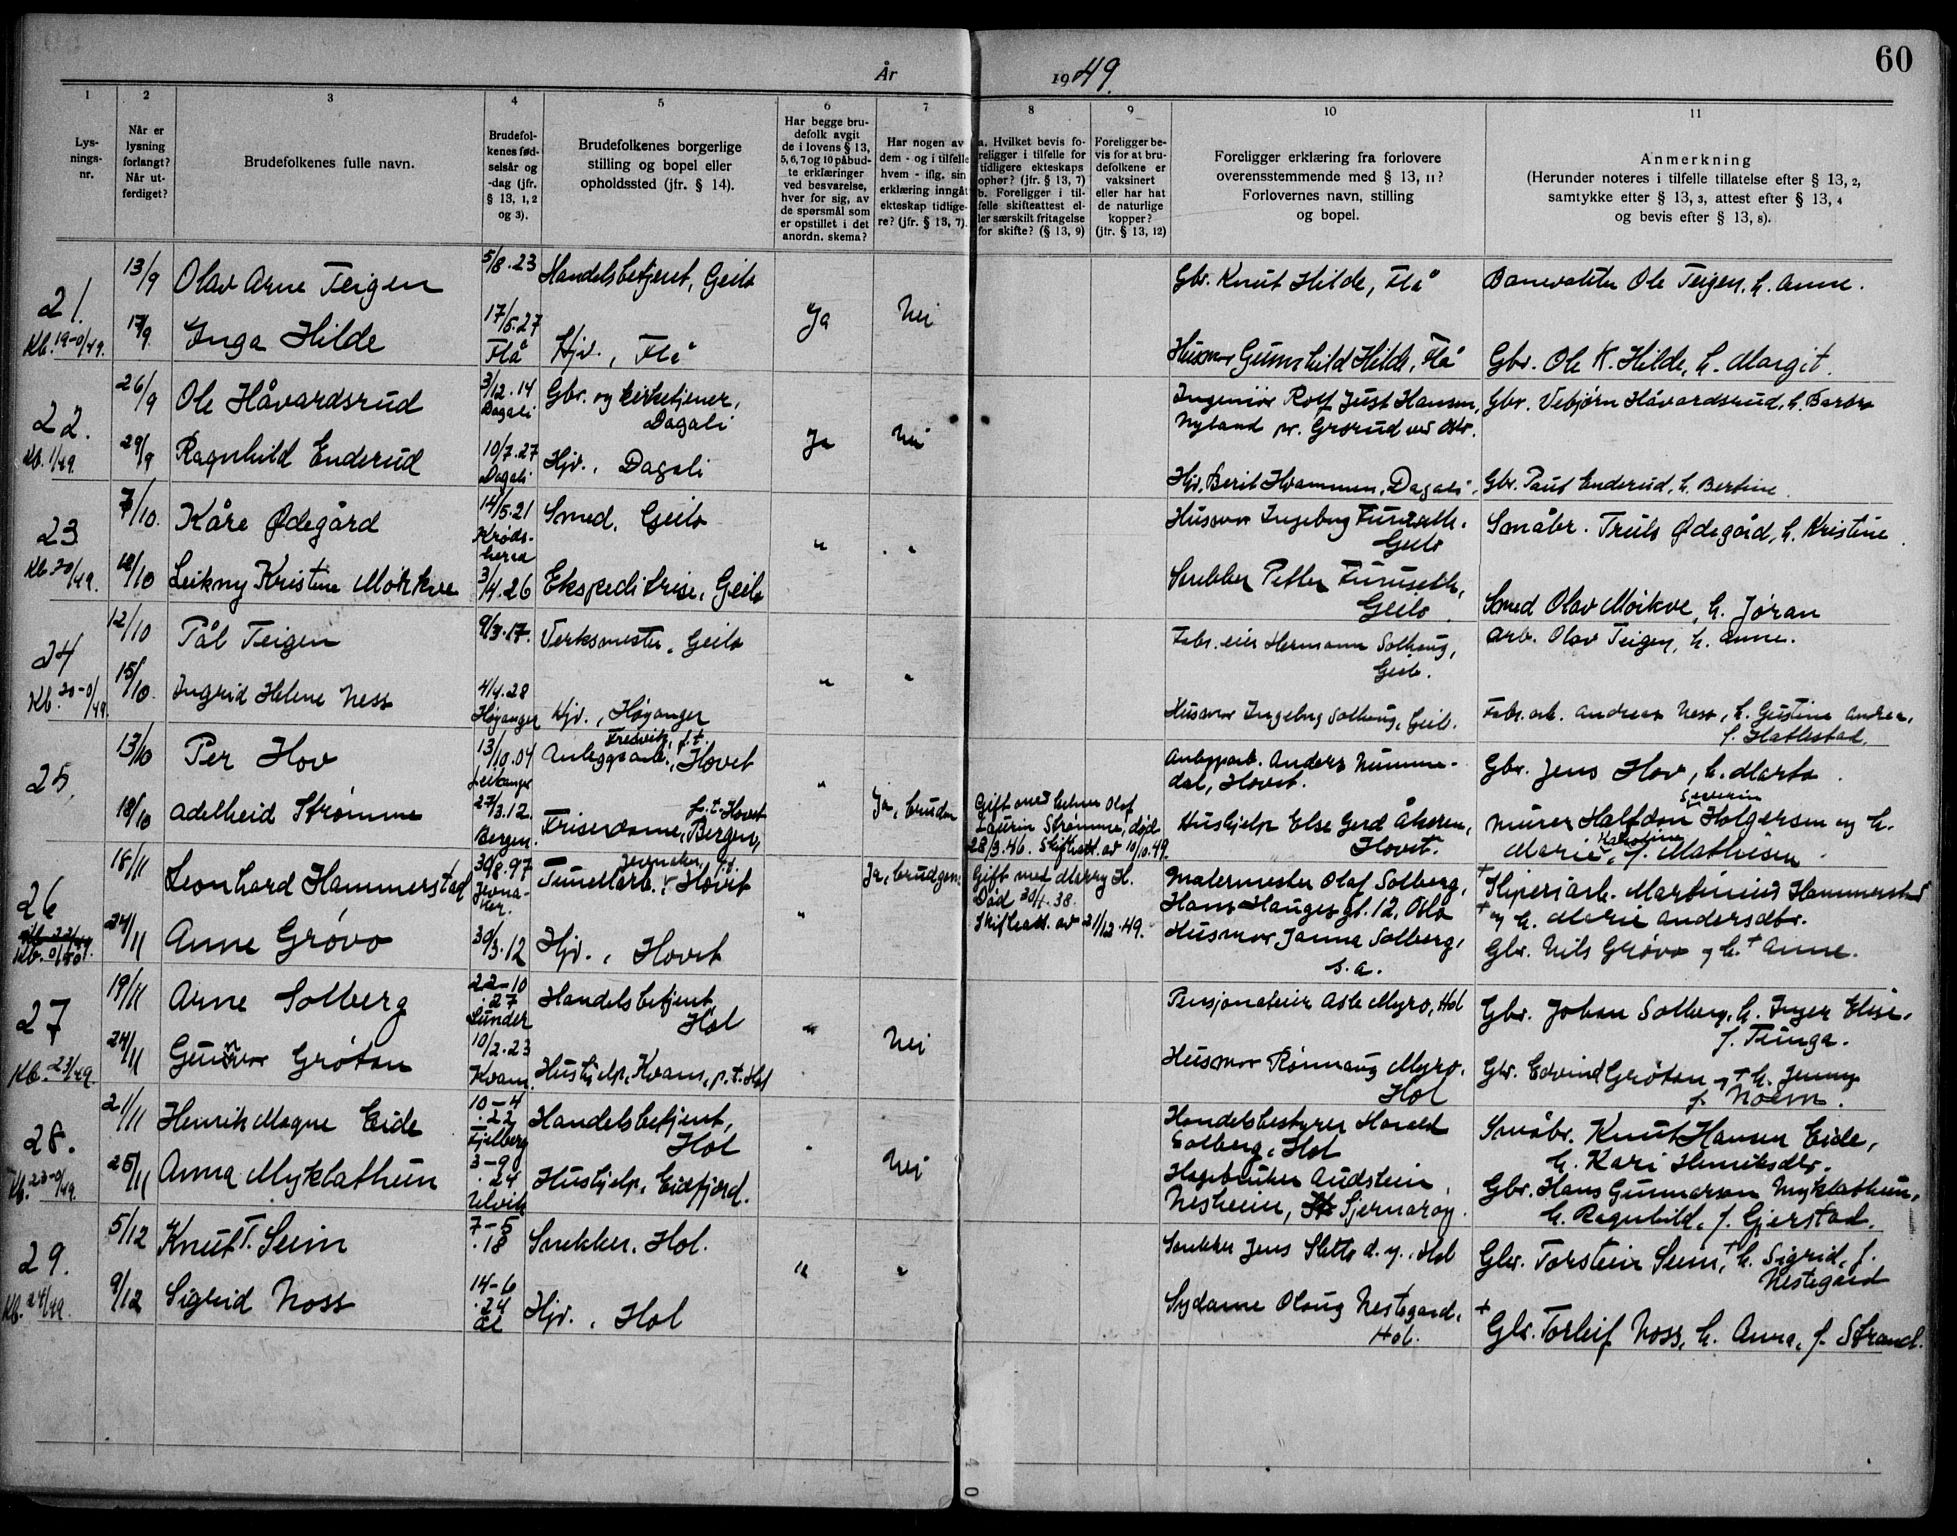 60
År 1949.
1 2 3 4 5 6 7 8 9 10 11
Lysningsnr.
Når er lysning forlangt? Når utferdiget?
Brudefolkenes fulle navn.
Brudefolkenes fødselsår og -dag (jfr. § 13, 1, 2 og 3).
Brudefolkenes borgerlige stilling og bopel eller opholdssted (jfr. § 14).
Har begge brudefolk avgit de i lovens § 13, 5, 6, 7 og 10 påbudte erklæringer ved besvarelse, hver for sig, av de spørsmål som er opstillet i det anordn. skema?
Har nogen av dem - og i tilfelle hvem - iflg. sin erklæring inngått ekteskap tidligere? (jfr. § 13, 7).
a. Hvilket bevis foreligger i tilfelle for tidligere ekteskaps ophør? (jfr. § 13, 7) b. Foreligger i tilfelle skifteattest eller særskilt fritagelse for skifte? (§ 13, 9)
Foreligger bevis for at brudefolkene er vaksinert eller har hat de naturlige kopper? (jfr. § 13, 12)
Foreligger erklæring fra forlovere overensstemmende med § 13, 11? Forlovernes navn, stilling og bopel.
Anmerkning (Herunder noteres i tilfelle tillatelse efter § 13, 2, samtykke etter § 13, 3, attest efter § 13, 4 og bevis efter § 13, 8).
21. 13/9 Olav Arne Teigen 5/8.23 Handelsbetjent, Geilo Gbr. Knut Hilde, Flå Banevokter Ole Teigen, h. Anne.
Kb. 19-0/49. 17/9. Inga Hilde 17/5.27 Flå Hjv., Flå Ja Nei Husmor Gunnhild Hilde, Flå Gbr. Ole K. Hilde, h. Margit.
22. 26/9 Ole Håvardsrud 3/12.14 Dagali Gbr. og kirketjener, Dagali Ingeniør Rolf Just Hansen, Nyland pr. Grorud ved Oslo. Gbr. Vebjørn Håvardsrud, h. Barbro
Kb. 1/49. 29/9 Ragnhild Enderud 10/7.27 Dagali Hjv., Dagali Ja Nei Hjv. Berit Hvammen, Dagali. Gbr. Paul Enderud, h. Bertine.
23 7/10. Kåre Ødegård 14/5.21 Krødsherad Smed, Geilo " " Husmor Ingebjørg Furuseth, Geilo Småbr. Truls Ødegård, h. Kristine.
Kb. 20/49. 12/10 Leikny Kristine Møkkve 3/4.26 Ekspeditrise, Geilo Snekker Petter Furuseth, Geilo. Smed Olav Moikve, h. Jøran
24 12/10 Pål Teigen 9/3.17. Verksmester, Geilo Fabr. eier Hermann Solhaug, Geilo. Arb. Olav Teigen, h. Anne.
Kb. 20-0/49. 15/10. Ingrid Helene Ness 4/4.28 Høyanger Hjv., Høyanger " " Husmor Ingebjørg Solhaug, Geilo. Fabr. arb. Andreas Ness, h. Gustine Andrea, f. Hatlestad.
25. 13/10 Per Hov 13/10.04 Leikanger Anleggsarb., Fresvik, p.t. Hovet " Anleggsarb. Anders Nummedal, Hovet. Gbr. Jens Hov, h. Marta.
18/10 Adelheid Strømme 27/3.12. Bergen. Friserdame, Bergen, p.t. Hovet Ja, bruden Gift med Olaf Laurin Strømme, død 28/3.46. Skifteatt. av 10/10.49. Hushjelp Else Gerd Åkeren, Hovet. Murer Halfdan Severin Holgersen og h. Marie Karoline, f. Mathisen.
26 18/11 Leonhard Hammerstad 30/8.97 Jevnaker. Tunellarb. Jevnaker, p.t. Hovet Ja, brudgom Gift med Merry H. Død 30/1.38. Skifteatt. av 21/12.49. Malermester Olaf Solberg, Hans Hauges gt. 12, Oslo + Sliperiarb. Martinius Hammerstad + og h. Marie Andersdtr.
Kb. 0/50. 24/11 Anne Grøvo 30/3.12 Hjv., Hovet " Husmor Janna Solberg, s.a. Gbr. Nils Grøvo og h. + Anne.
27 19/11 Arne Solberg 22-10.27 Lunder Handelsbetjent, Hol " Pensjonateier Asle Myro, Hol Gbr. Johan Solberg, h. Inger Elise, f. Tunga.
Kb. 23/49. 24/11 Gunvor Grøtan 10/2.23 Kvam. Hushjelp, Kvam, p.t. Hol Nei Husmor Rønnaug Myro, Hol Gbr. Edvind Grøtan og + h. Jenny f. Noem.
28. 21/11 Henrik Magne Eide 10-4.22 Fjelberg Handelsbetjent, Hol Handelsbestyrer Harald Solberg, Hol Småbr. Knut Hansen Eide, h. Kari Henriksdtr.
Kb. 23-0/49. 25/11 Anna Myklathun 3-9.24 Ulvik Hushjelp, Eidfjord. " Nei Hagebruker Audstein Nesheim, Sjernarøy. Gbr. Hans Gunnarson Myklathun, h. Ragnhild, f. Gjerstad.
29. 5/12 Knut T. Seim 7-5.18 Snekker, Hol. " " Snekker Jens Sletto d.y., Hol Gbr. Torstein Seim, + h. Sigrid, f. Nestegård
Kb. 24/49. 9/12 Sigrid Noss 14-6.24 Ål Hjv., Hol Sydame Olaug Nestegard, Hol. + Gbr. Torleif Noss, h. Anna, f. Strand.